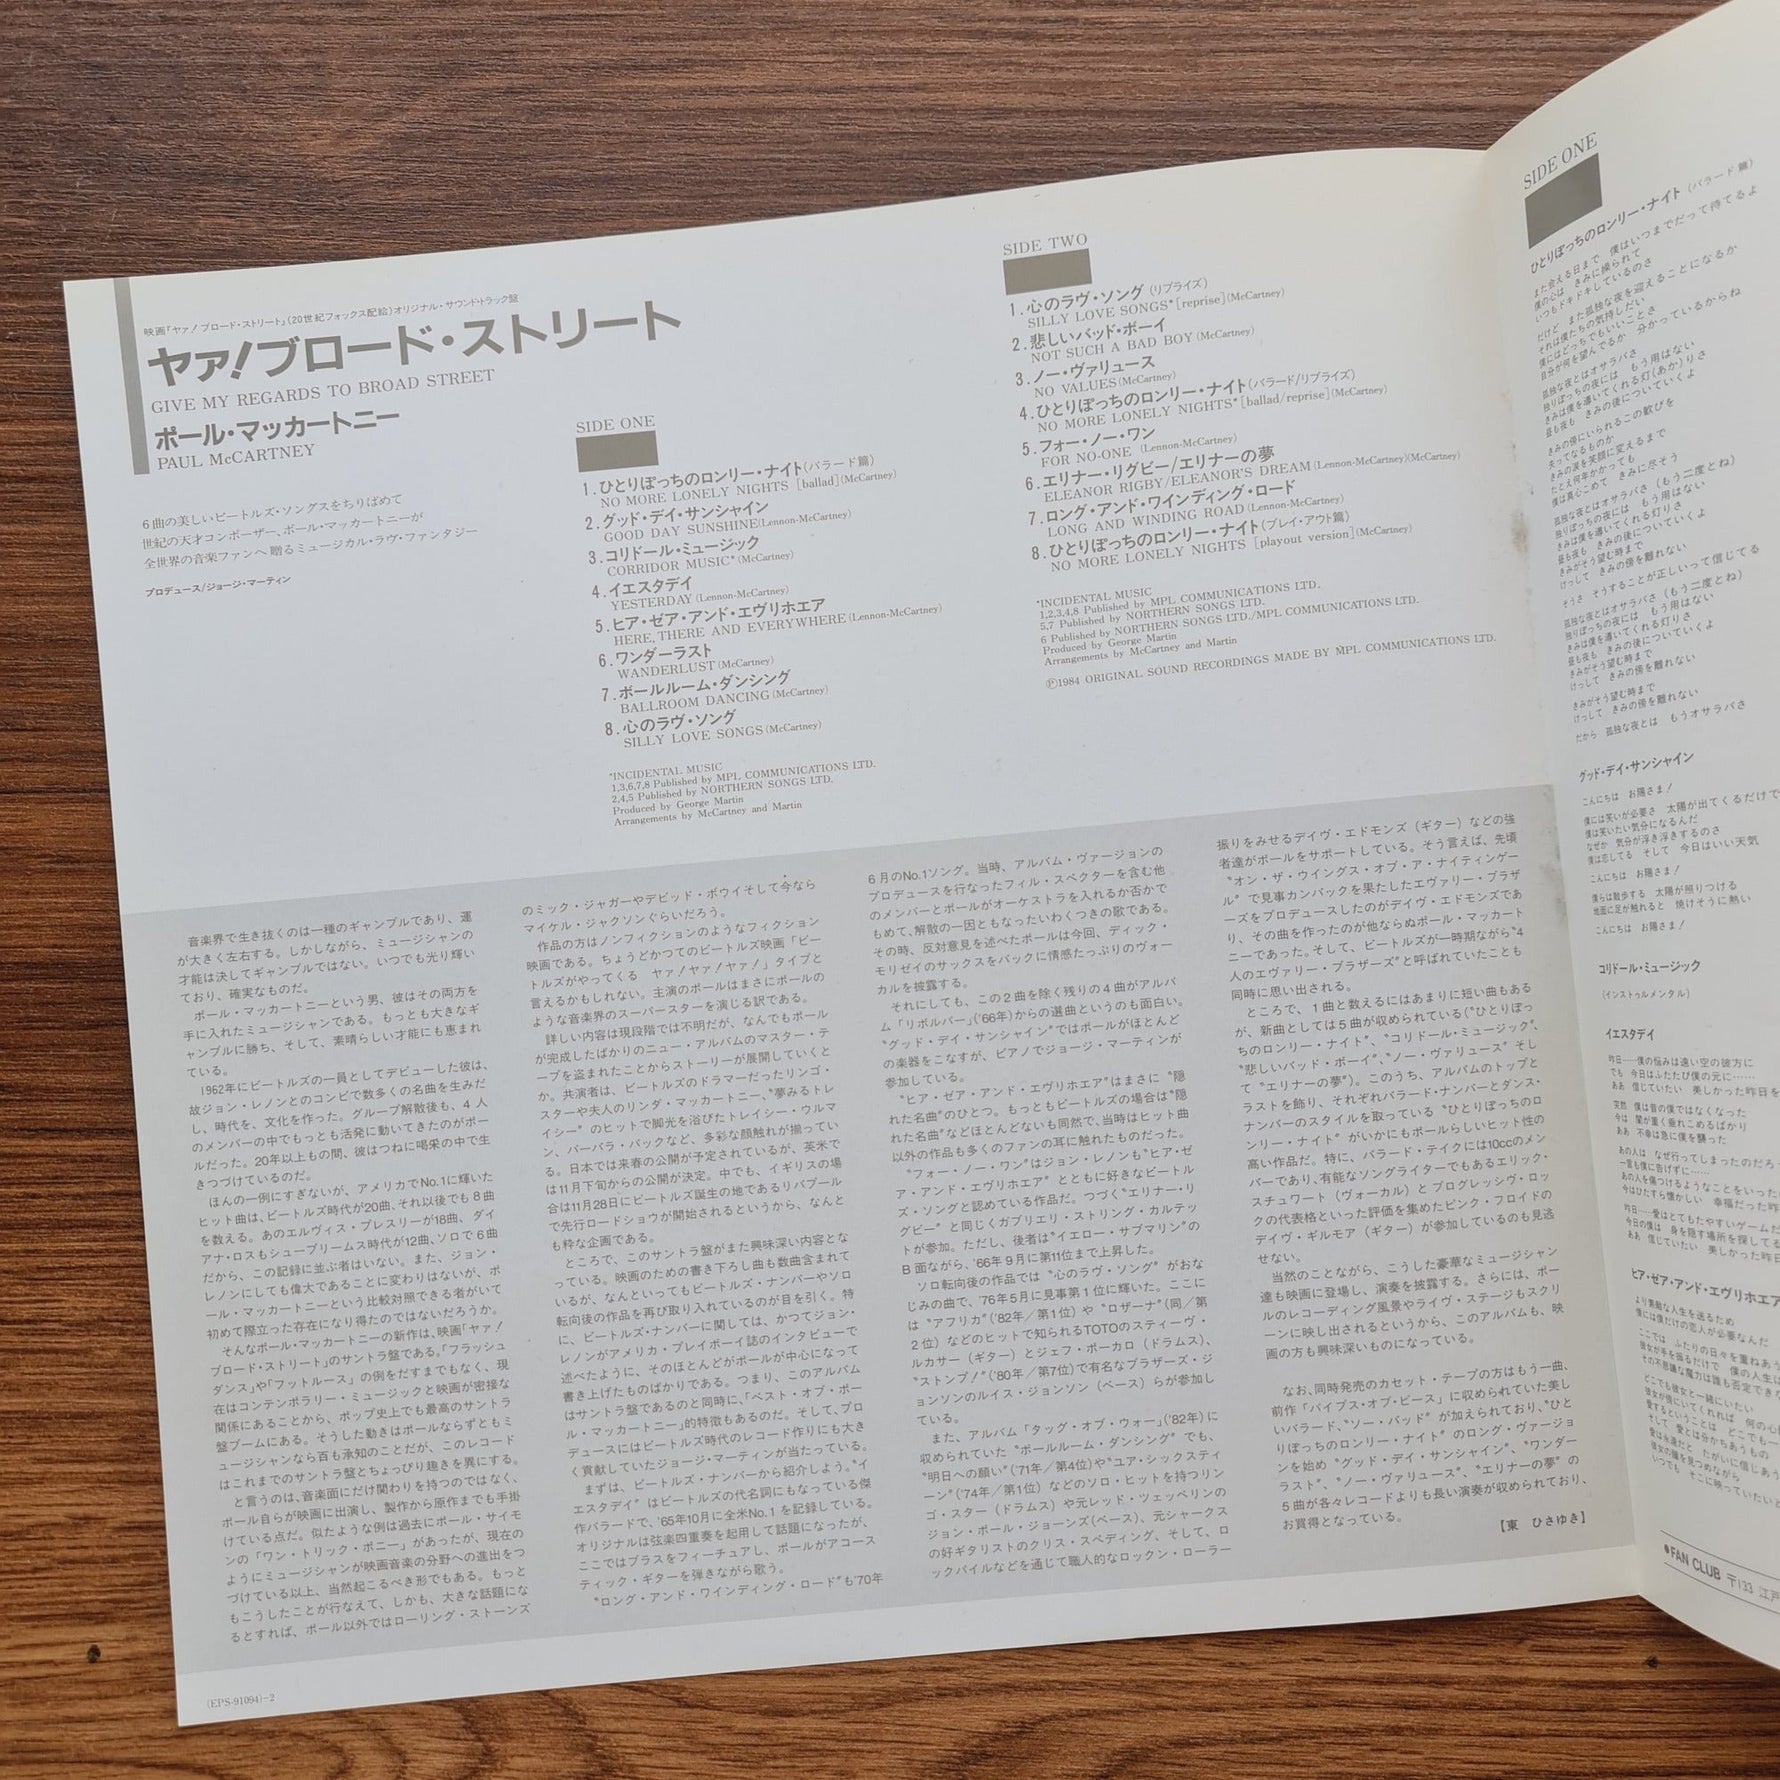 映画「ヤァ！ブロード・ストリート」(20世紀フォックス配給)オリジナル・サウンド・トラック盤
ヤァ！ブロード・ストリート
GIVE MY REGARDS TO BROAD STREET
ポール・マッカートニー
PAUL McCARTNEY
6曲の美しいビートルズ・ソングスをちりばめて
世紀の天才コンポーザー、ポール・マッカートニーが
全世界の音楽ファンへ贈るミュージカル・ラヴ・ファンタジー
プロデュース/ジョージ・マーティン
SIDE ONE
1.ひとりぽっちのロンリー・ナイト(バラード篇)
NO MORE LONELY NIGHTS [ballad](McCartney)
2.グッド・デイ・サンシャイン
GOOD DAY SUNSHINE(Lennon-McCartney)
3.コリドール・ミュージック
CORRIDOR MUSIC*(McCartney)
4.イエスタデイ
YESTERDAY(Lennon-McCartney)
5.ヒア・ゼア・アンド・エヴリホエア
HERE, THERE AND EVERYWHERE(Lennon-McCartney)
6.ワンダーラスト
WANDERLUST(McCartney)
7.ボールルーム・ダンシング
BALLROOM DANCING(McCartney)
8.心のラヴ・ソング
SILLY LOVE SONGS(McCartney)
*INCIDENTAL MUSIC
1,3,6,7,8 Published by MPL COMMUNICATIONS LTD.
2,4,5 Published by NORTHERN SONGS LTD.
Produced by George Martin
Arrangements by McCartney and Martin
SIDE TWO
1.心のラヴ・ソング(リプライズ)
SILLY LOVE SONGS*[reprise](McCartney)
2.悲しいバッド・ボーイ
NOT SUCH A BAD BOY(McCartney)
3.ノー・ヴァリュース
NO VALUES(McCartney)
4.ひとりぽっちのロンリー・ナイト(バラード/リプライズ)
NO MORE LONELY NIGHTS*[ballad/reprise](McCartney)
5.フォー・ノー・ワン
FOR NO-ONE(Lennon-McCartney)
6.エリナー・リグビー/エリナーの夢
ELEANOR RIGBY/ELEANOR'S DREAM(Lennon-McCartney)(McCartney)
7.ロング・アンド・ワインディング・ロード
LONG AND WINDING ROAD(Lennon-McCartney)
8.ひとりぽっちのロンリー・ナイト(プレイ・アウト篇)
NO MORE LONELY NIGHTS [playout version](McCartney)
*INCIDENTAL MUSIC
1,2,3,4,8 Published by MPL COMMUNICATIONS LTD.
5,7 Published by NORTHERN SONGS LTD.
6 Published by NORTHERN SONGS LTD./MPL COMMUNICATIONS LTD.
Produced by George Martin
Arrangements by McCartney and Martin
Ⓟ1984 ORIGINAL SOUND RECORDINGS MADE BY MPL COMMUNICATIONS LTD.
音楽界で生き抜くのは一種のギャンブルであり、運
が大きく左右する。しかしながら、ミュージシャンの
才能は決してギャンブルではない。いつでも光り輝い
ており、確実なものだ。
ポール・マッカートニーという男、彼はその両方を
手に入れたミュージシャンである。もっとも大きなギ
ャンブルに勝ち、そして、素晴らしい才能にも恵まれ
ている。
1962年にビートルズの一員としてデビューした彼は、
故ジョン・レノンとのコンビで数多くの名曲を生みだ
し、時代を、文化を作った。グループ解散後も、4人
のメンバーの中でもっとも活発に動いてきたのがポー
ルだった。20年以上もの間、彼はつねに喝采の中で生
きつづけているのだ。
ほんの一例にすぎないが、アメリカでNo.1に輝いた
ヒット曲は、ビートルズ時代が20曲、それ以後でも8曲
を数える。あのエルヴィス・プレスリーが18曲、ダイ
アナ・ロスもシュープリームス時代が12曲、ソロで6曲
だから、この記録に並ぶ者はいない。また、ジョン・
レノンにしても偉大であることに変わりはないが、ポ
ール・マッカートニーという比較対照できる者がいて
初めて際立った存在になり得たのではないだろうか。
そんなポール・マッカートニーの新作は、映画「ヤァ！
ブロード・ストリート」のサントラ盤である。「フラッシュ
ダンス」や「フットルース」の例をだすまでもなく、現
在はコンテンポラリー・ミュージックと映画が密接な
関係にあることから、ポップ史上でも最高のサントラ
盤ブームにある。そうした動きはポールならずともミ
ュージシャンなら百も承知のことだが、このレコード
はこれまでのサントラ盤とちょっぴり趣きを異にする。
と言うのは、音楽面にだけ関わりを持つのではなく、
ポール自らが映画に出演し、製作から原作までも手掛
けている点だ。似たような例は過去にポール・サイモ
ンの「ワン・トリック・ポニー」があったが、現在の
ようにミュージシャンが映画音楽の分野への進出をつ
づけている以上、当然起こるべき形でもある。もっと
もこうしたことが行なえて、しかも、大きな話題にな
るとすれば、ポール以外ではローリング・ストーンズ
のミック・ジャガーやデビッド・ボウイそして今なら
マイケル・ジャクソンぐらいだろう。
作品の方はノンフィクションのようなフィクション
映画である。ちょうどかつてのビートルズ映画「ビー
トルズがやってくる ヤァ！ヤァ！ヤァ！」タイプと
言えるかもしれない。主演のポールはまさにポールの
ような音楽界のスーパースターを演じる訳である。
詳しい内容は現段階では不明だが、なんでもポール
が完成したばかりのニュー・アルバムのマスター・テ
ープを盗まれたことからストーリーが展開していくと
か。共演者は、ビートルズのドラマーだったリンゴ・
スターや夫人のリンダ・マッカートニー、“夢みるトレ
イシー”のヒットで脚光を浴びたトレイシー・ウルマ
ン、バーバラ・バックなど、多彩な顔触れが揃ってい
る。日本では来春の公開が予定されているが、英米で
は11月下旬からの公開が決定。中でも、イギリスの場
合は11月28日にビートルズ誕生の地であるリバプール
で先行ロードショウが開始されるというから、なんと
も粋な企画である。
ところで、このサントラ盤がまた興味深い内容とな
っている。映画のための書き下ろし曲も数曲含まれて
いるが、なんといってもビートルズ・ナンバーやソロ
転向後の作品を再び取り入れているのが目を引く。特
に、ビートルズ・ナンバーに関しては、かつてジョン・
レノンがアメリカ・プレイボーイ誌のインタビューで
述べたように、そのほとんどがポールが中心になって
書き上げたものばかりである。つまり、このアルバム
はサントラ盤であるのと同時に、「ベスト・オブ・ポー
ル・マッカートニー」的特徴もあるのだ。そして、プロ
デュースにはビートルズ時代のレコード作りにも大き
く貢献していたジョージ・マーティンが当たっている。
まずは、ビートルズ・ナンバーから紹介しよう。“イ
エスタデイ”はビートルズの代名詞にもなっている傑
作バラードで、'65年10月に全米No.1を記録している。
オリジナルは弦楽四重奏を起用して話題になったが、
ここではブラスをフィーチュアし、ポールがアコース
ティック・ギターを弾きながら歌う。
“ロング・アンド・ワインディング・ロード”も'70年
6月のNo.1ソング。当時、アルバム・ヴァージョンの
プロデュースを行なったフィル・スペクターを含む他
のメンバーとポールがオーケストラを入れるか否かで
もめて、解散の一因ともなったいわくつきの歌である。
その時、反対意見を述べたポールは今回、ディック・
モリゼイのサックスをバックに情感たっぷりのヴォー
カルを披露する。
それにしても、この2曲を除く残りの4曲がアルバ
ム「リボルバー」('66年)からの選曲というのも面白い。
“グッド・デイ・サンシャイン”ではポールがほとんど
の楽器をこなすが、ピアノでジョージ・マーティンが
参加している。
“ヒア・ゼア・アンド・エヴリホエア”はまさに“隠
れた名曲”のひとつ。もっともビートルズの場合は“隠
れた名曲”などほとんどないも同然で、当時はヒット曲
以外の作品も多くのファンの耳に触れたものだった。
“フォー・ノー・ワン”はジョン・レノンも“ヒア・ゼ
ア・アンド・エヴリホエア”とともに好きなビートル
ズ・ソングと認めている作品だ。つづく“エリナー・リ
グビー”と同じくガブリエリ・ストリング・カルテッ
トが参加。ただし、後者は“イエロー・サブマリン”の
B面ながら、'66年9月に第11位まで上昇した。
ソロ転向後の作品では“心のラヴ・ソング”がおな
じみの曲で、'76年5月に見事第1位に輝いた。ここに
は“アフリカ”('82年/第1位)や“ロザーナ”(同/第
2位)などのヒットで知られるTOTOのスティーヴ・
ルカサー(ギター)とジェフ・ポーカロ(ドラムス)、
“ストンプ！”('80年/第7位)で有名なブラザーズ・ジ
ョンソンのルイス・ジョンソン(ベース)らが参加し
ている。
また、アルバム「タッグ・オブ・ウォー」('82年)に
収められていた“ボールルーム・ダンシング”でも、
“明日への願い”('71年/第4位)や“ユア・シックスティ
ーン”('74年/第1位)などのソロ・ヒットを持つリン
ゴ・スター(ドラムス)や元レッド・ツェッペリンの
ジョン・ポール・ジョーンズ(ベース)、元シャークス
の好ギタリストのクリス・スペディング、そして、ロ
ックパイルなどを通じて職人的なロックン・ローラー
振りをみせるデイヴ・エドモンズ(ギター)などの強
者達がポールをサポートしている。そう言えば、先頃
“オン・ザ・ウイングス・オブ・ア・ナイティンゲー
ル”で見事カンバックを果たしたエヴァリー・ブラザ
ーズをプロデュースしたのがデイヴ・エドモンズであ
り、その曲を作ったのが他ならぬポール・マッカート
ニーであった。そして、ビートルズが一時期ながら“4
人のエヴァリー・ブラザーズ”と呼ばれていたことも
同時に思い出される。
ところで、1曲と数えるにはあまりに短い曲もある
が、新曲としては5曲が収められている(“ひとりぽっ
ちのロンリー・ナイト”、“コリドール・ミュージック”、
“悲しいバッド・ボーイ”、“ノー・ヴァリュース”そし
て“エリナーの夢”)。このうち、アルバムのトップと
ラストを飾り、それぞれバラード・ナンバーとダンス・
ナンバーのスタイルを取っている“ひとりぽっちのロ
ンリー・ナイト”がいかにもポールらしいヒット性の
高い作品だ。特に、バラード・テイクには10ccのメン
バーであり、有能なソングライターでもあるエリック・
スチュワート(ヴォーカル)とプログレッシヴ・ロッ
クの代表格といった評価を集めたピンク・フロイドの
デイヴ・ギルモア(ギター)が参加しているのも見逃
せない。
当然のことながら、こうした豪華なミュージシャン
達も映画に登場し、演奏を披露する。さらには、ポー
ルのレコーディング風景やライヴ・ステージもスクリ
ーンに映し出されるというから、このアルバムも、映
画の方も興味深いものになっている。
なお、同時発売のカセット・テープの方はもう一曲、
前作「パイプス・オブ・ピース」に収められていた美し
いバラード、“ソー・バッド”が加えられており、“ひと
りぽっちのロンリー・ナイト”のロング・ヴァージョ
ンを始め“グッド・デイ・サンシャイン”、“ワンダー
ラスト”、“ノー・ヴァリュース”、“エリナーの夢”の
5曲が各々レコードよりも長い演奏が収められており、
お買得となっている。
【東 ひさゆき】
(EPS-91094)-2
SIDE ONE
ひとりぽっちのロンリー・ナイト(バラード篇)
また会える日まで 僕はいつまでだって待てるよ
僕の心は きみに操られて
いつもドキドキしているのさ
だけど また孤独な夜を迎えることになるか
それは僕たちの気持しだい
僕にはどっちでもいいことさ
自分が何を望んでるか 分かっているからね
孤独な夜とはオサラバさ
独りぽっちの夜には もう用はない
きみは僕を導いてくれる灯(あか)りさ
昼も夜も きみの後についていくよ
きみの傍にいられるこの歓びを
失ってなるものか
きみの涙を笑顔に変えるまで
たとえ何年かかっても
僕は真心こめて きみに尽そう
孤独な夜とはオサラバさ(もう二度とね)
独りぽっちの夜には もう用はない
きみは僕を導いてくれる灯りさ
昼も夜も きみの後についていくよ
きみがそう望む時まで
けっして きみの傍を離れない
そうさ そうすることが正しいって信じてる
孤独な夜とはオサラバさ(もう二度とね)
独りぽっちの夜には もう用はない
きみは僕を導いてくれる灯りさ
昼も夜も きみの後についていくよ
きみがそう望む時まで
けっして きみの傍を離れない
きみがそう望む時まで
けっして きみの傍を離れない
だから 孤独な夜とは もうオサラバさ
グッド・デイ・サンシャイン
こんにちは お陽さま！
僕には笑いが必要さ 太陽が出てくるだけで
僕は笑いたい気分になるんだ
なぜか 気分が浮き浮きするのさ
僕は恋してる そして 今日はいい天気
こんにちは お陽さま！
僕らは散歩する 太陽が照りつける
地面に足が触れると 焼けそうに熱い
こんにちは お陽さま！
コリドール・ミュージック
(インストゥルメンタル)
イエスタデイ
昨日……僕の悩みは遠い空の彼方に
でも 今日はふたたび僕の元に……
ああ 信じていたい 美しかった昨日を
突然 僕は昔の僕ではなくなった
今は 闇が重く垂れこめるばかり
ああ 不幸は急に僕を襲った
あの人は なぜ行ってしまったのだろ
一言も僕に告げずに……
あの人を傷つけるようなことをいった
今はひたすら懐かしい 幸福だった昨
昨日……愛はとてもたやすいゲームだ
今日の僕は 身を隠す場所を探してる
ああ 信じていたい 美しかった昨日
ヒア・ゼア・アンド・エヴリホエア
より素敵な人生を送るため
僕には僕だけの恋人が必要なんだ
ここでは ふたりの日々を重ねあう
彼女が手を振るだけで 僕の人生は
その不思議な魔力は誰も否定できな
どこでも彼女と一緒にいたい
彼女が傍にいてくれれば 何の心
愛するということは どこでも一
そして 愛とは分かちあうもの
愛は永遠だと たがいに信じあう
彼女の瞳を見つめながら
いつでも そこに映っていたいと
●FAN CLUB 〒133 江戸